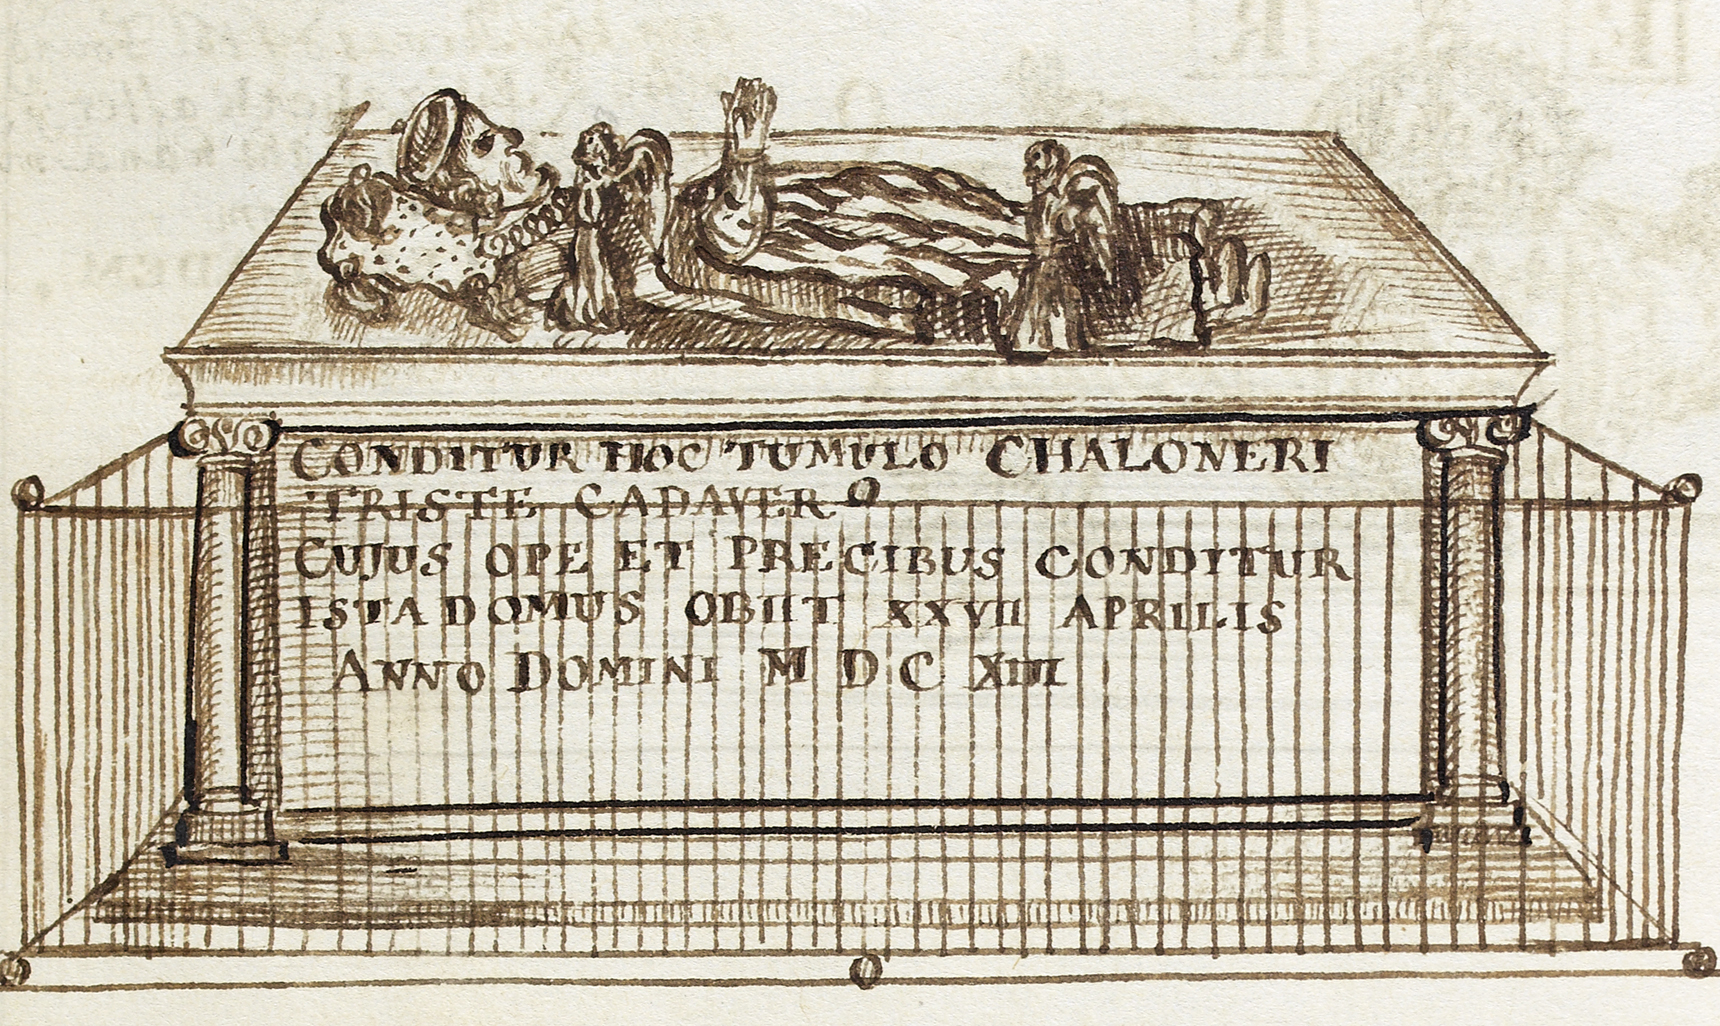 CONDITUR HOC TUMULO CHALONERI
TRISTE CADAVER
CUJUS OPE ET PRECIBUS CONDITUR
ISTA DOMUS OBIIT XXVII APRILIS
ANNO DOMINI M D C XIII